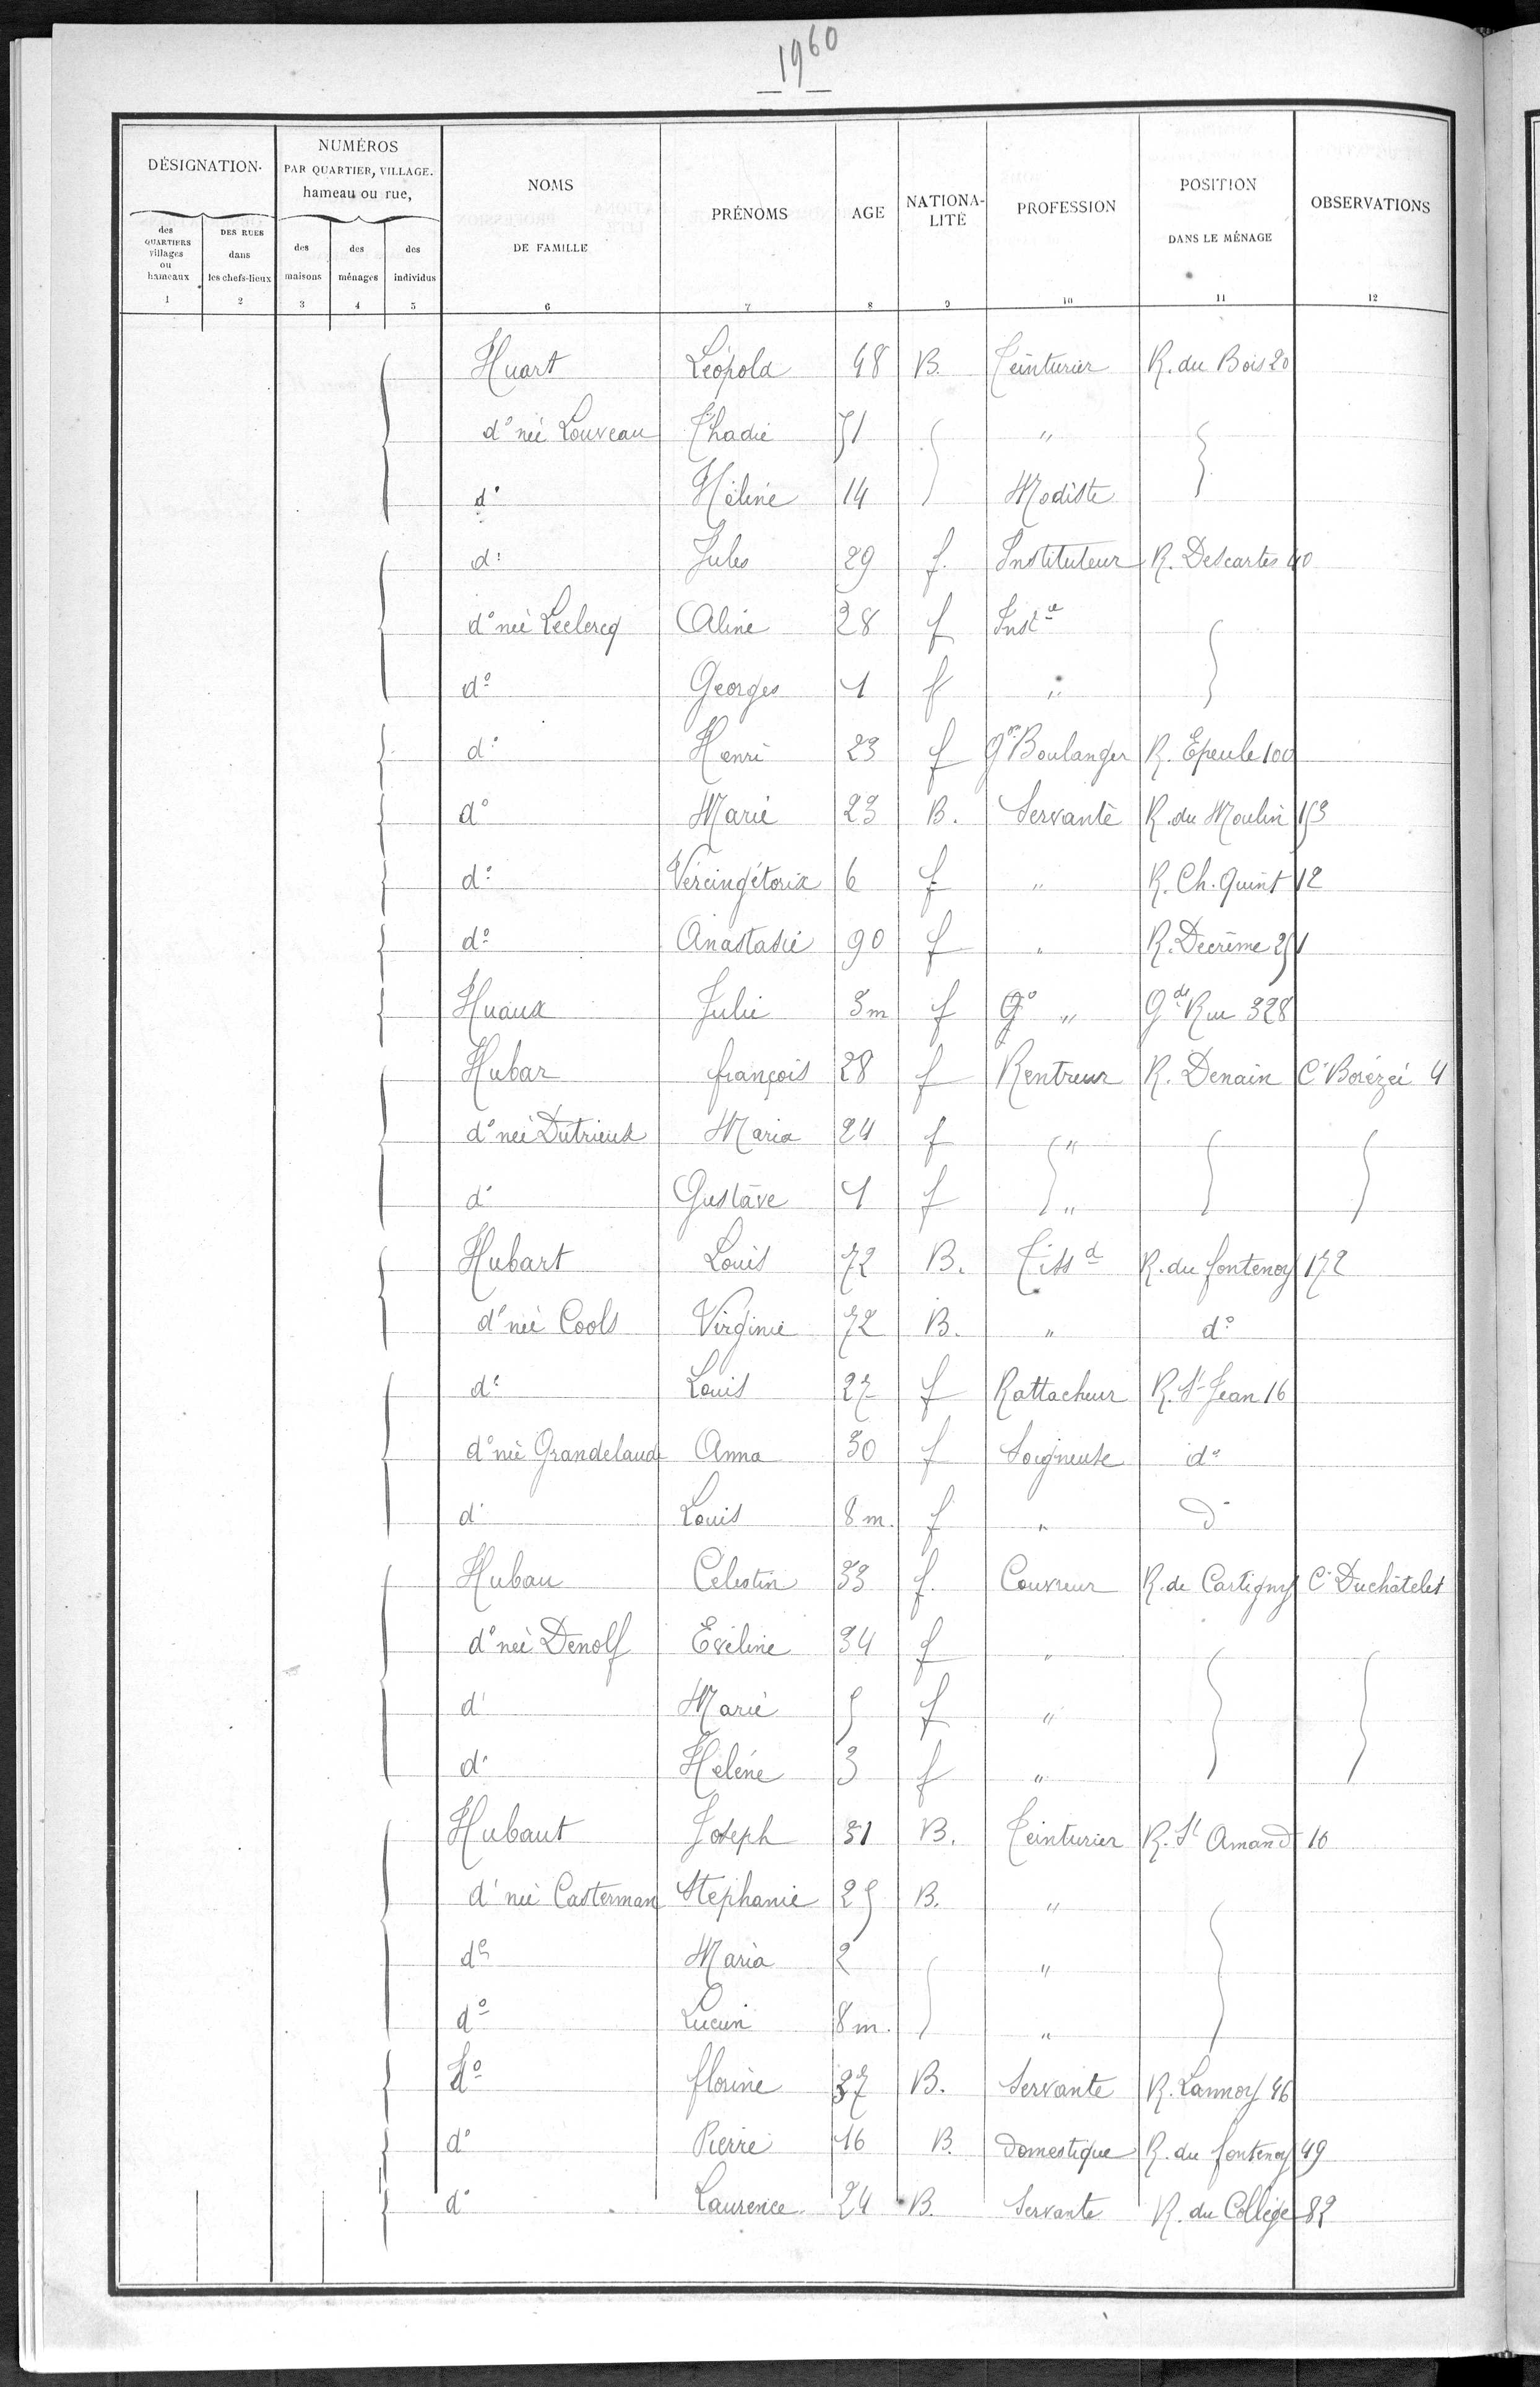 1960
DÉSIGNATION. NUMÉROS PAR QUARTIER, VILLAGE. hameau ou rue, NOMS DE FAMILLE PRÉNOMS AGE NATIONA-LITÉ PROFESSION POSITION DANS LE MÉNAGE OBSERVATIONS
des QUARTIERS villages ou hameaux DES RUES dans les chefs-lieux des maisons des ménages des individus
1 2 3 4 5 6 7 8 9 10 11 12
Huart Léopold 48 B. Teinturier R. du Bois 20
dº née Louveau Thadie 51 "
dº Hélène 14 Modiste
dº Jules 29 f. Instituteur R. Descartes 40
dº née Leclercq Aline 28 f Instce
dº Georges 1 f "
dº Henri 23 f Gon Boulanger R. Epeule 100
dº Marie 23 B. Servante R. du Moulin 153
dº Vercingétorix 6 f " R. Ch. Quint 12
dº Anastasie 90 f " R. Decrême 251
Huaux Julie 3m f Gº " Gde Rue 328
Hubar françois 28 f Rentreur R. Denain Cr Borézée 4
dº née Dutrieux Maria 24 f "
dº Gustave 1 f "
Hubart Louis 72 B. Tissd R. du fontenoy 172
dº née Cools Virginie 72 B. " dº
dº Louis 27 f Rattacheur R. St Jean 16
dº née Grandelaude Anna 30 f Soigneuse dº
dº Louis 8m. f " dº
Hubau Célestin 33 f. Couvreur R. de Cartigny Cr Duchâtelet
dº née Denolf Eveline 34 f "
dº Marie 5 f "
dº Helène 3 f "
Hubaut Joseph 31 B. Teinturier R. St Amand 10
dº née Casterman Stephanie 25 B. "
dº Maria 2 "
dº Lucien 8m. "
dº florine 37 B. Servante R. Lannoy 46
dº Pierre 16 B. Domestique R. du fontenoy 49
dº Laurence 24 B. Servante R. du Collège 82